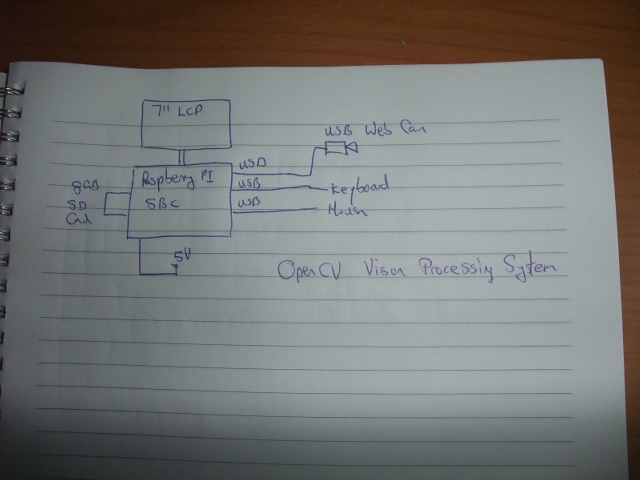 7" LCD
USB Web Cam
USB
Raspberry PI
USB
Keyboard
8GB
SD
SBC
USB
Card
5V
OpenCV Vison Processing System